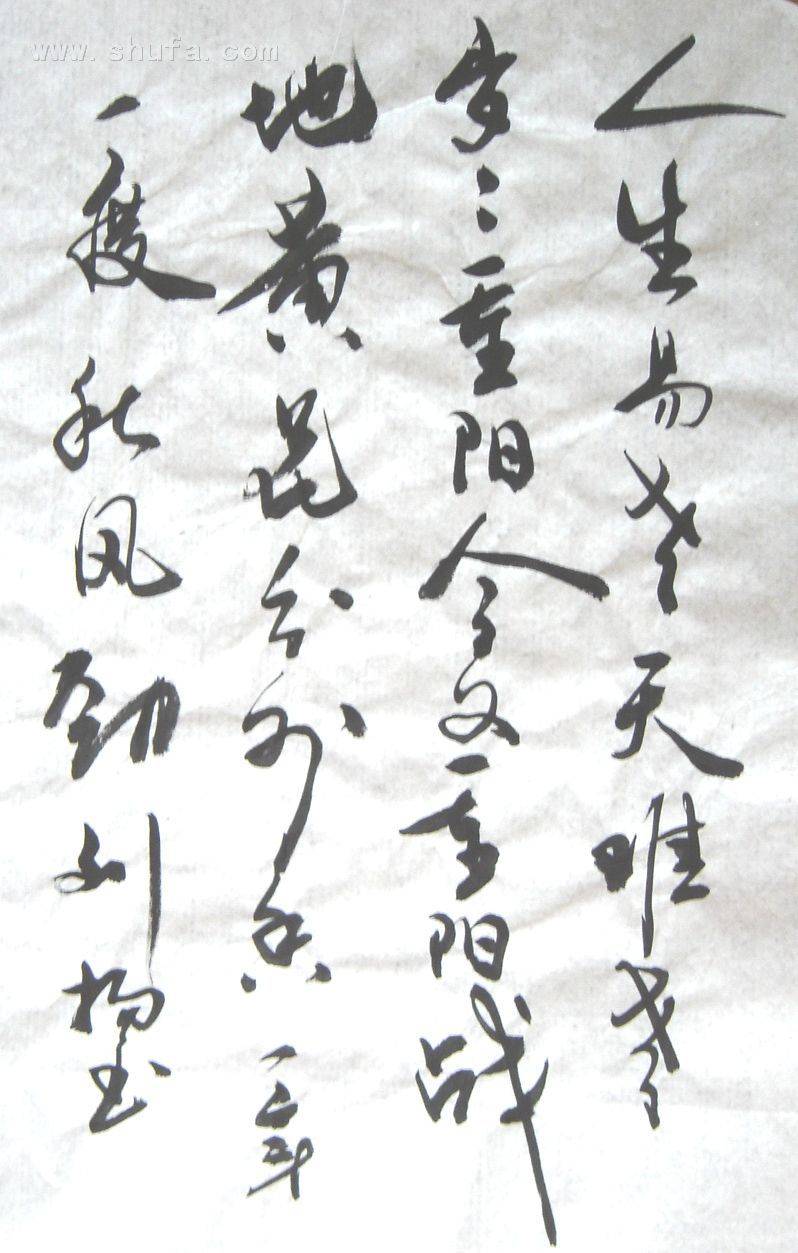 www.shufa.com
人生易老天难老
岁々重阳今又重阳战
地黄花分外香一年
一度秋风劲刘